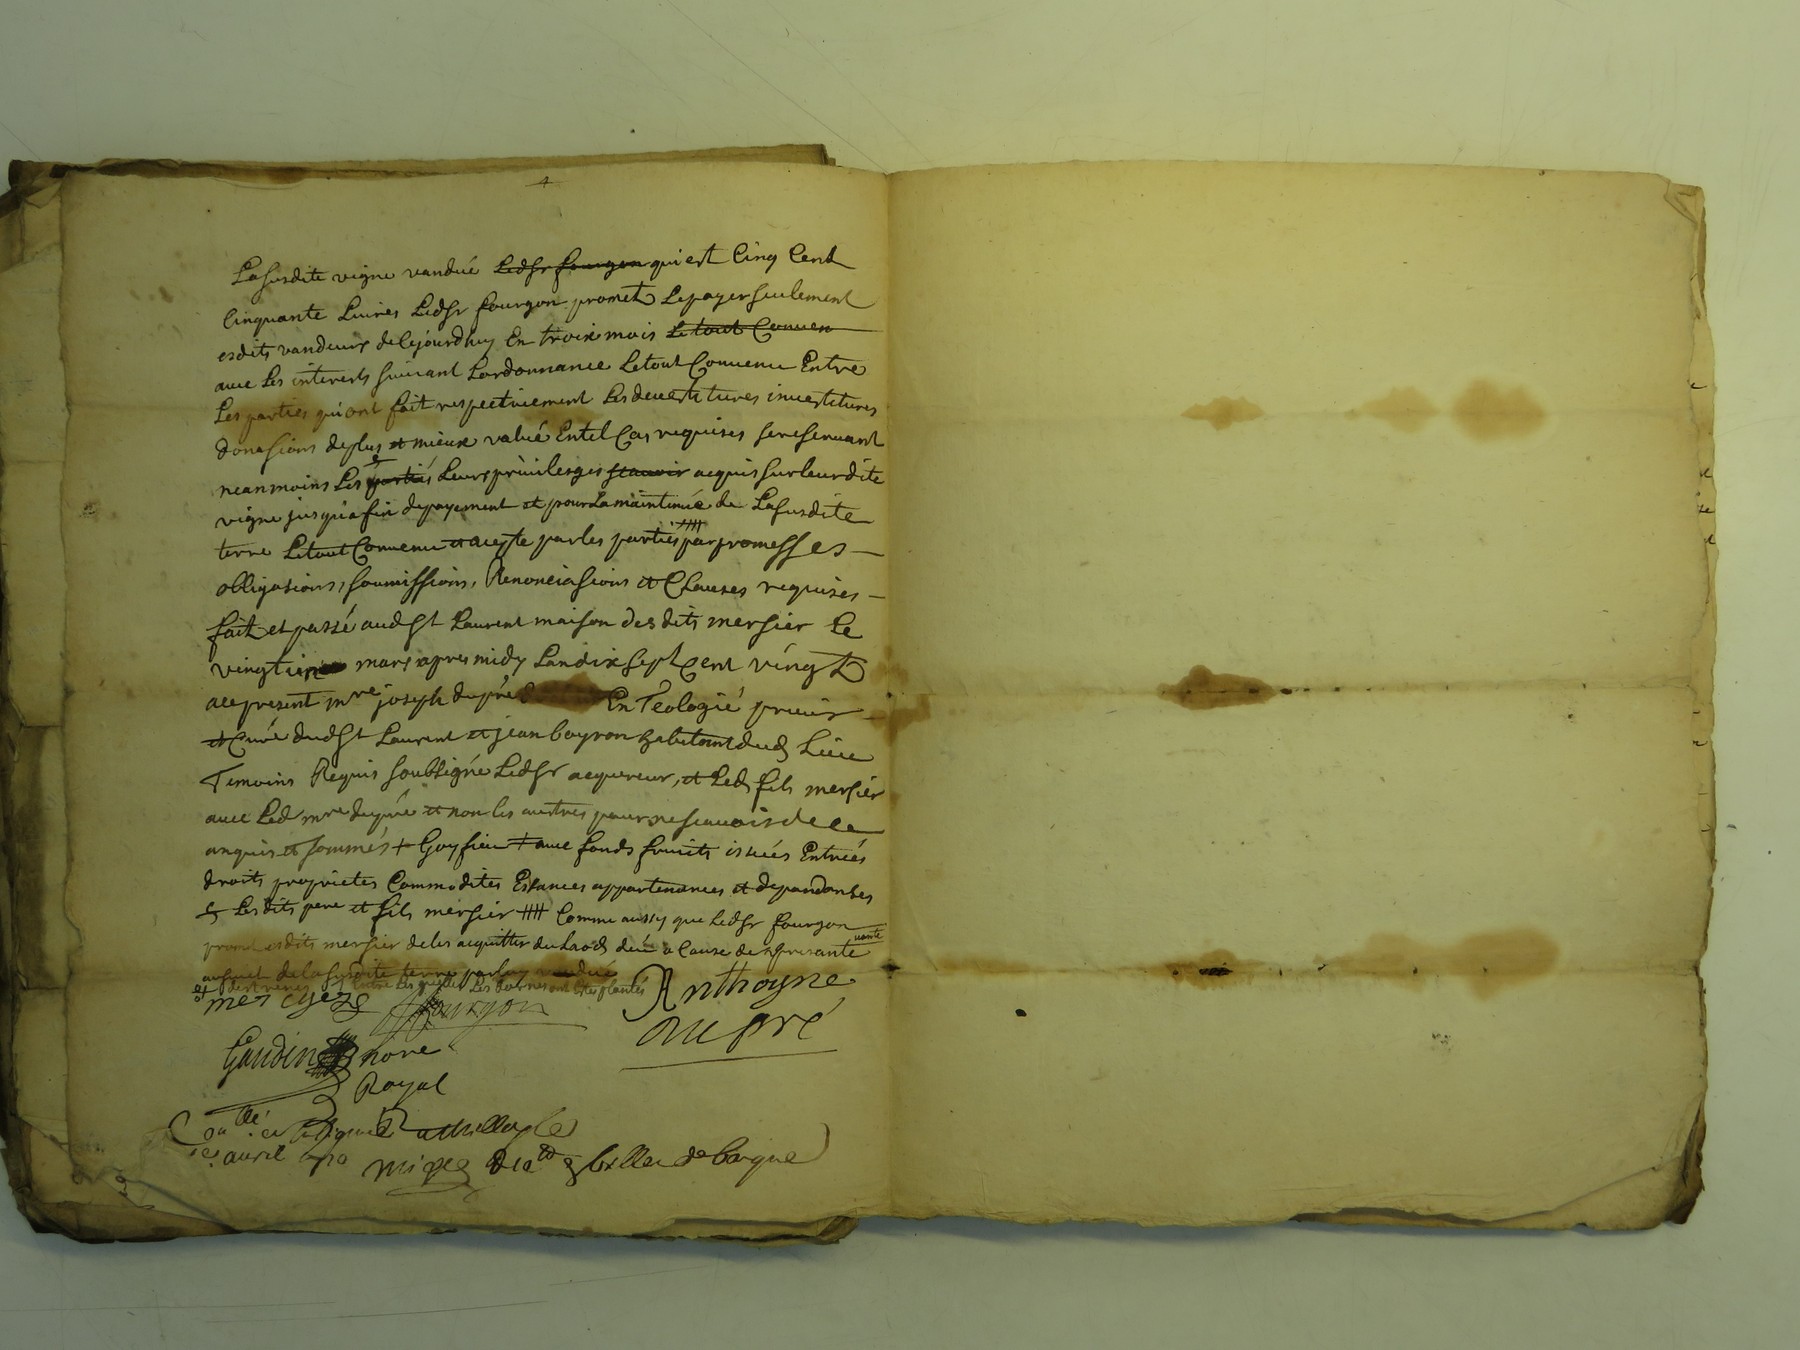 4
La susdite vigne vandué Ledsr fourgon qui est Cinq Cent
Cinquante Livres Ledsr fourgon promet Lepayer seulement
esdits vandeurs de Cejourdhuy En troix mois Le tout Conven
avec Les interests suivant Lordonnance Letout Convenu Entre
Les parties qui ont fait respectivement Les devestitures investitures
donasions deplus et mieux valué Entel Cas requises sereservant
neanmoins Les partiés Leurs privileges scauoir acquis sur leurdite
vigne jusqua fin depayement et pour La maintenüe de La susdite
terre Letout Convenu et acepte par les partiés #### par promesses
obligasions, soumissions, Renonciasions et Clauses requises
fait et passé audst Laurent maison desdits mersier Le
vingtieme mars apres midy Landix sept Cent vingt
ace present mre joseph dupré En Téologié prieur
et Curé dudst Laurent et jean boyron habitant dud Lieu
Temoins Requis soubsigné Ledsr acquereur, et Led fils mersier
avec Led mre dupré et non les austres pour ne scauoir de ce
anquis et sommés + Goyfieu + avec fonds fruits issues Entrées
droits proprietes Commodites Eisances appartenances et dependanses
Lesdits pere et fils mersier #### Comme aussy que Ledsr fourgon
promet esdits mersier de les acquitter du Laods deu a Cause de presante
vante
au sujet de la susdite terre par luy vandué
Entre Les quelles Les bornes ont Estes plantés
mercyeze fourgon Anthoyne
dupré
Gaudin nore
Royal
avril